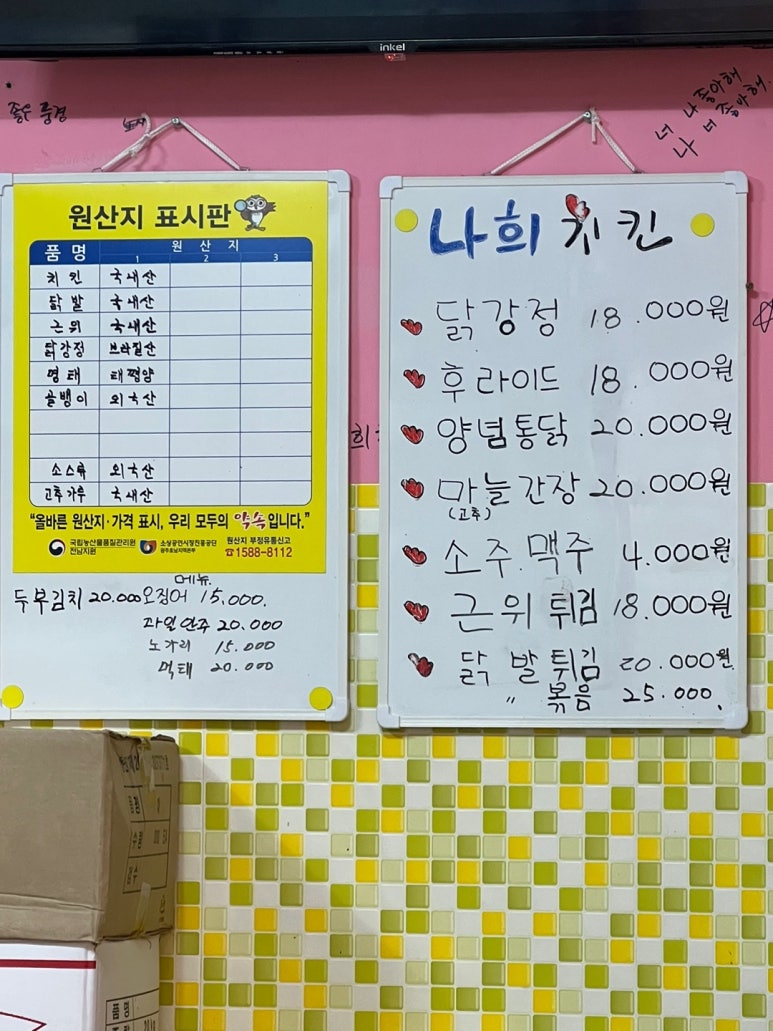 inkel
좋은 풍경
나 좋아해
너 너 좋아해.
나
원산지 표시판
품 명 원 산 지
1 2 3
치 킨 국내산
닭 발 국내산
근 위 국내산
닭강정 브라질산
명 태 태평양
골뱅이 외국산
소스류 외국산
고추가루 국내산
"올바른 원산지·가격 표시, 우리 모두의 약속입니다."
국립농산물품질관리원 전남지원
소상공인시장진흥공단 광주호남지역본부
원산지 부정유통신고
☎1588-8112
메뉴.
두부김치 20.000 오징어 15.000.
과일안주 20.000
노가리 15.000
먹태 20.000
나희 치킨
닭강정 18.000원
후라이드 18.000원
양념통닭 20.000원
마늘간장 20.000원
(고추)
소주.맥주 4.000원
근위튀김 18.000원
닭발튀김 20.000원
〃 볶음 25.000.